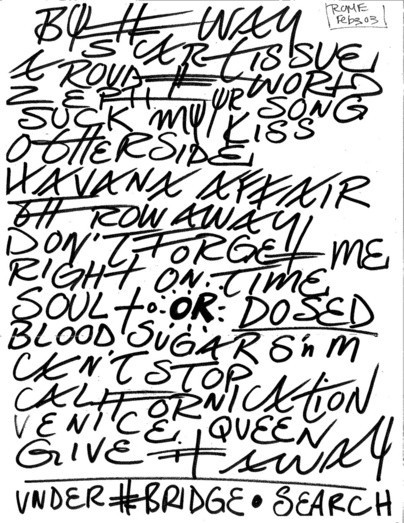 ROME
Feb 03
BY THE WAY
SCAR TISSUE
AROUND THE WORLD
ZEPHYR SONG
SUCK MY KISS
OTHERSIDE
HAVANA AFFAIR
THROW AWAY
DON'T FORGET ME
RIGHT ON TIME
SOUL to OR: DOSED
BLOOD SUGAR S'n M
CAN'T STOP
CALIFORNICATION
VENICE QUEEN
GIVE IT AWAY
UNDER THE BRIDGE • SEARCH